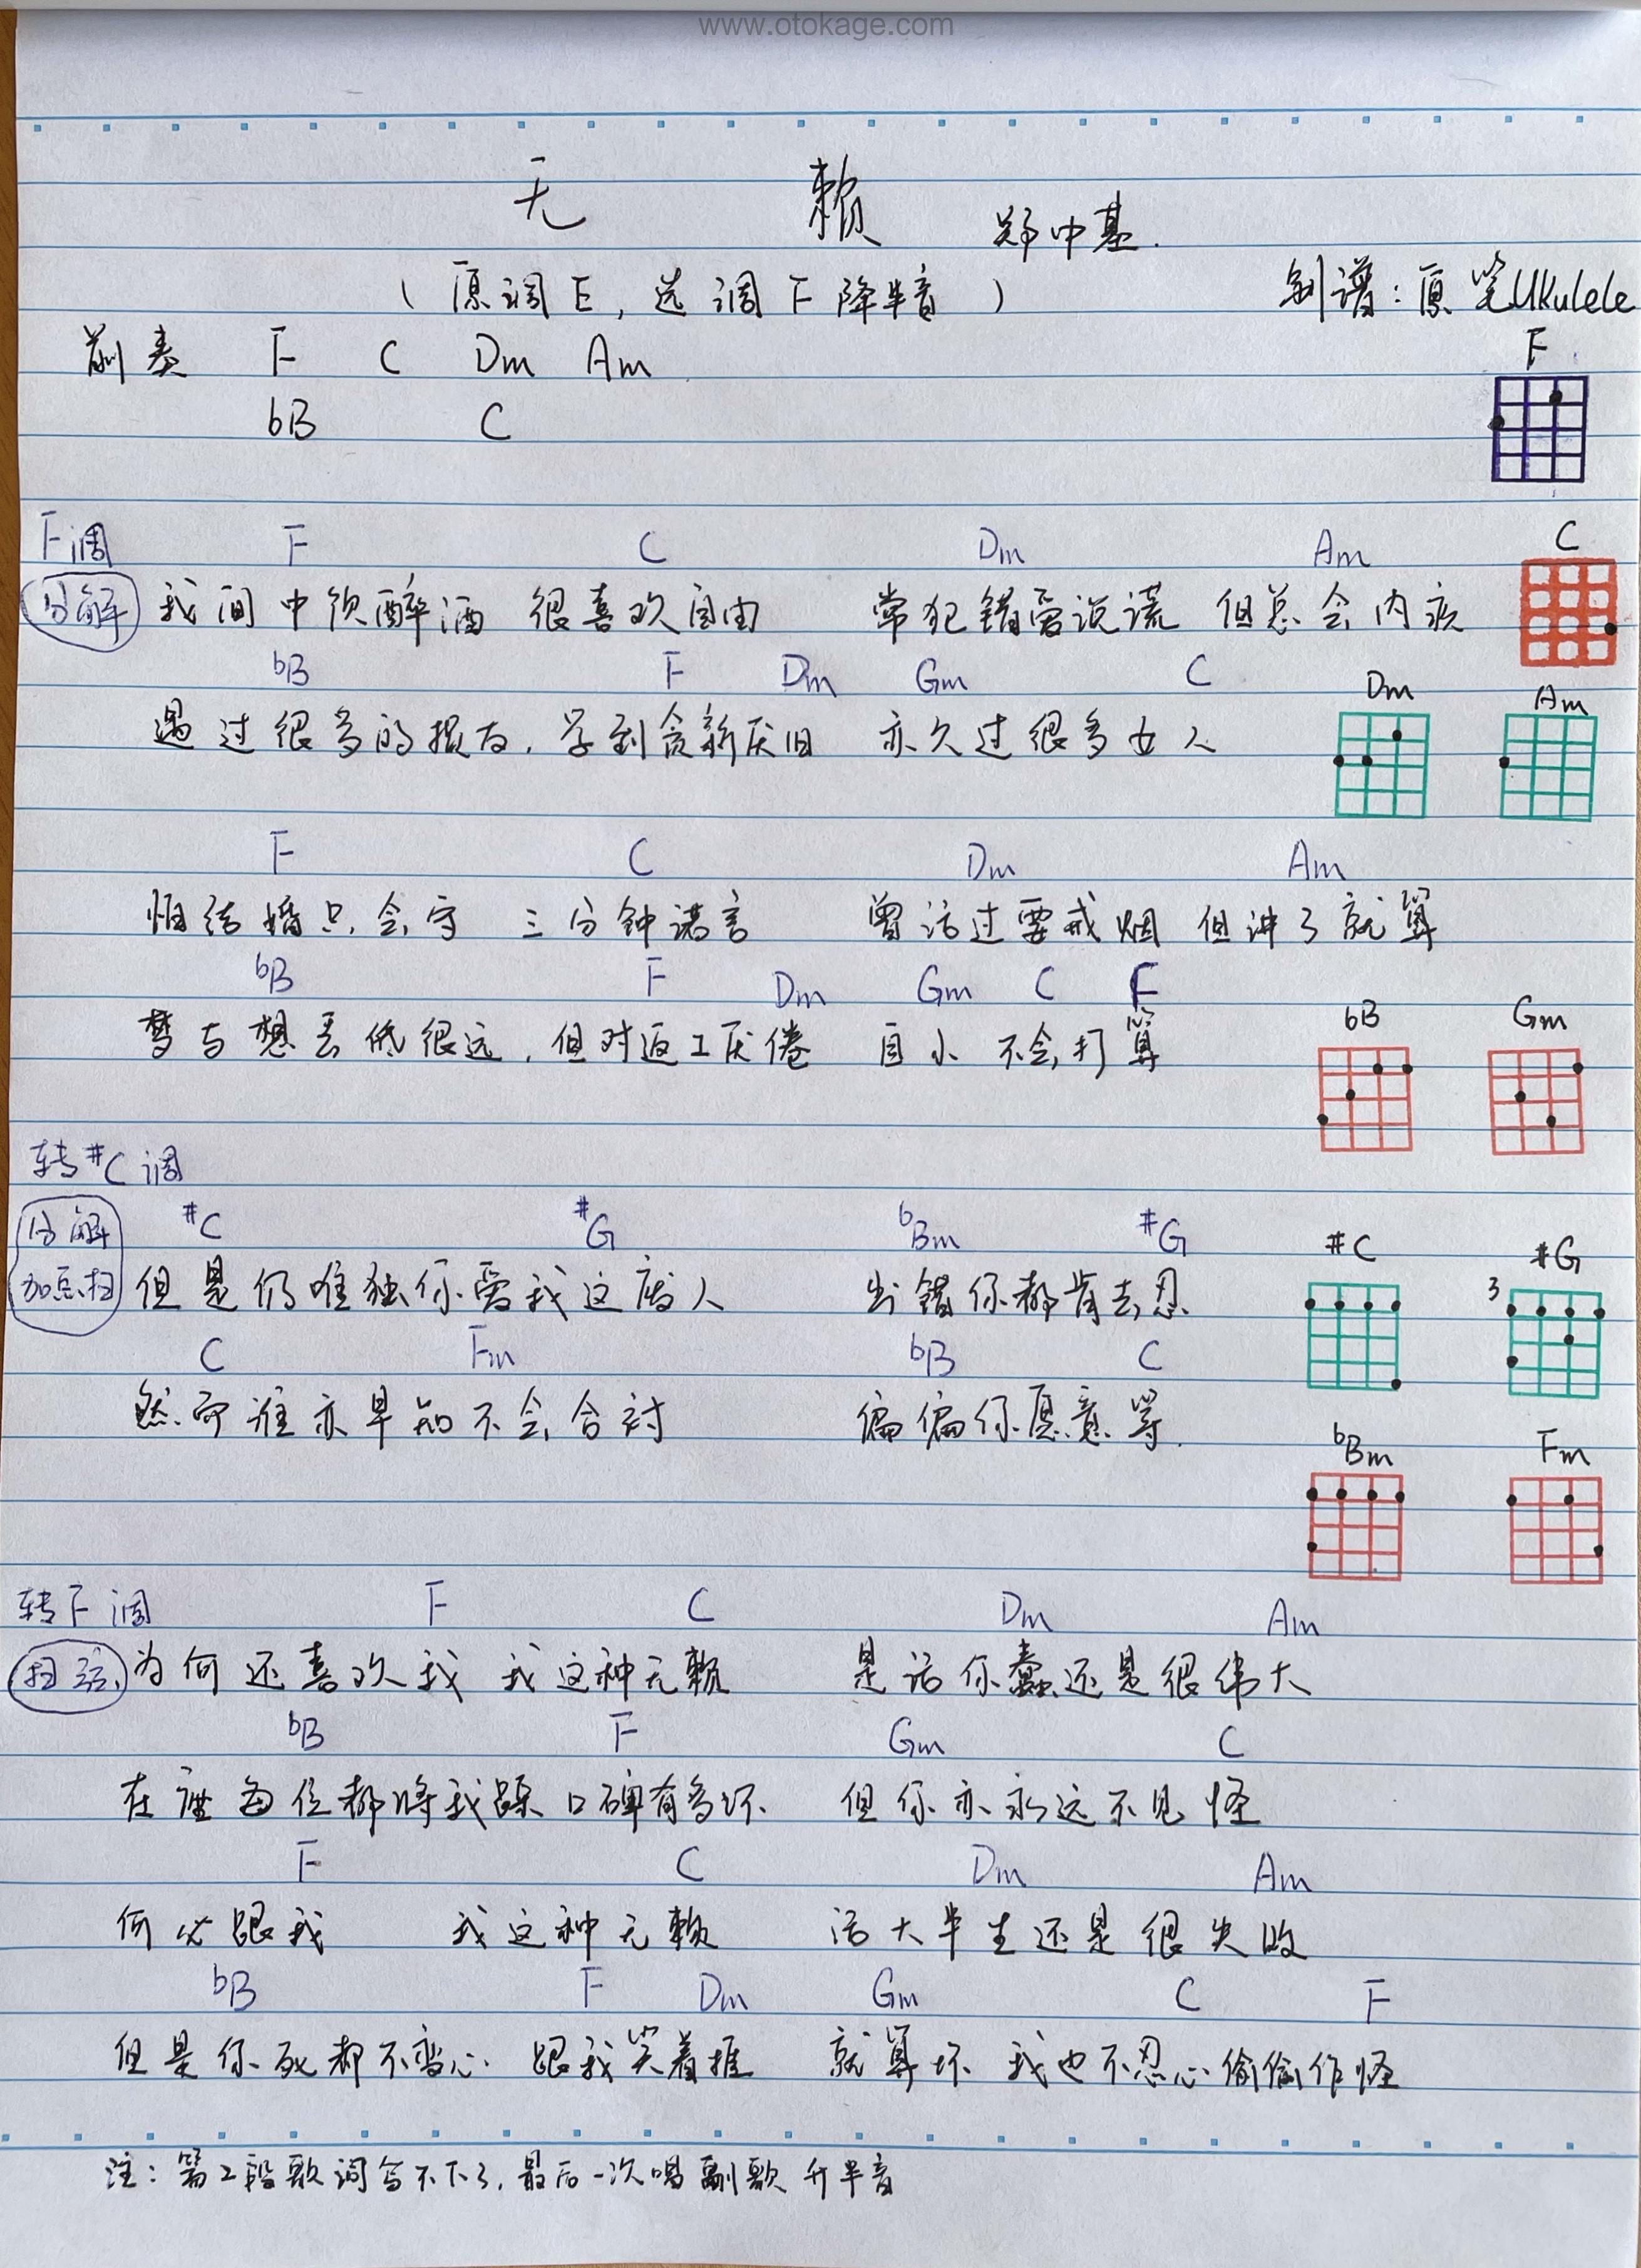 www.otokage.com
无赖 郑中基.
(原调E,选调F降半音) 制谱:原笙Ukulele
前奏 F C Dm Am
F
bB C
F调 F C Dm Am
C
分解 我间中饮醉酒 很喜欢自由 常犯错爱说谎 但总会内疚
bB F Dm Gm C
Dm Am
遇过很多的损友,学到贪新厌旧 亦欠过很多女人
F C Dm Am
怕结婚只会守 三分钟诺言 曾话过要戒烟 但讲了就算
bB F Dm Gm C F
bB Gm
梦与想丢低很远,但对返工厌倦 自小不会打算
转#C调
#C #G bBm #G
#C #G
分解加点扫 但是仍唯独你爱我这废人 出错你都肯去忍
3
C Fm bB C
然而谁亦早知不会合衬 偏偏你愿意等.
bBm Fm
转F调 F C Dm Am
扫弦 为何还喜欢我 我这种无赖 是话你蠢还是很伟大
bB F Gm C
在座每位都将我踩 口碑有多坏 但你亦永远不见怪
F C Dm Am
何必跟我 我这种无赖 活大半生还是很失败
bB F Dm Gm C F
但是你死都不变心 跟我笑着捱 就算坏 我也不忍心偷偷作怪
注:第2段歌词写不下了,最后一次唱副歌升半音